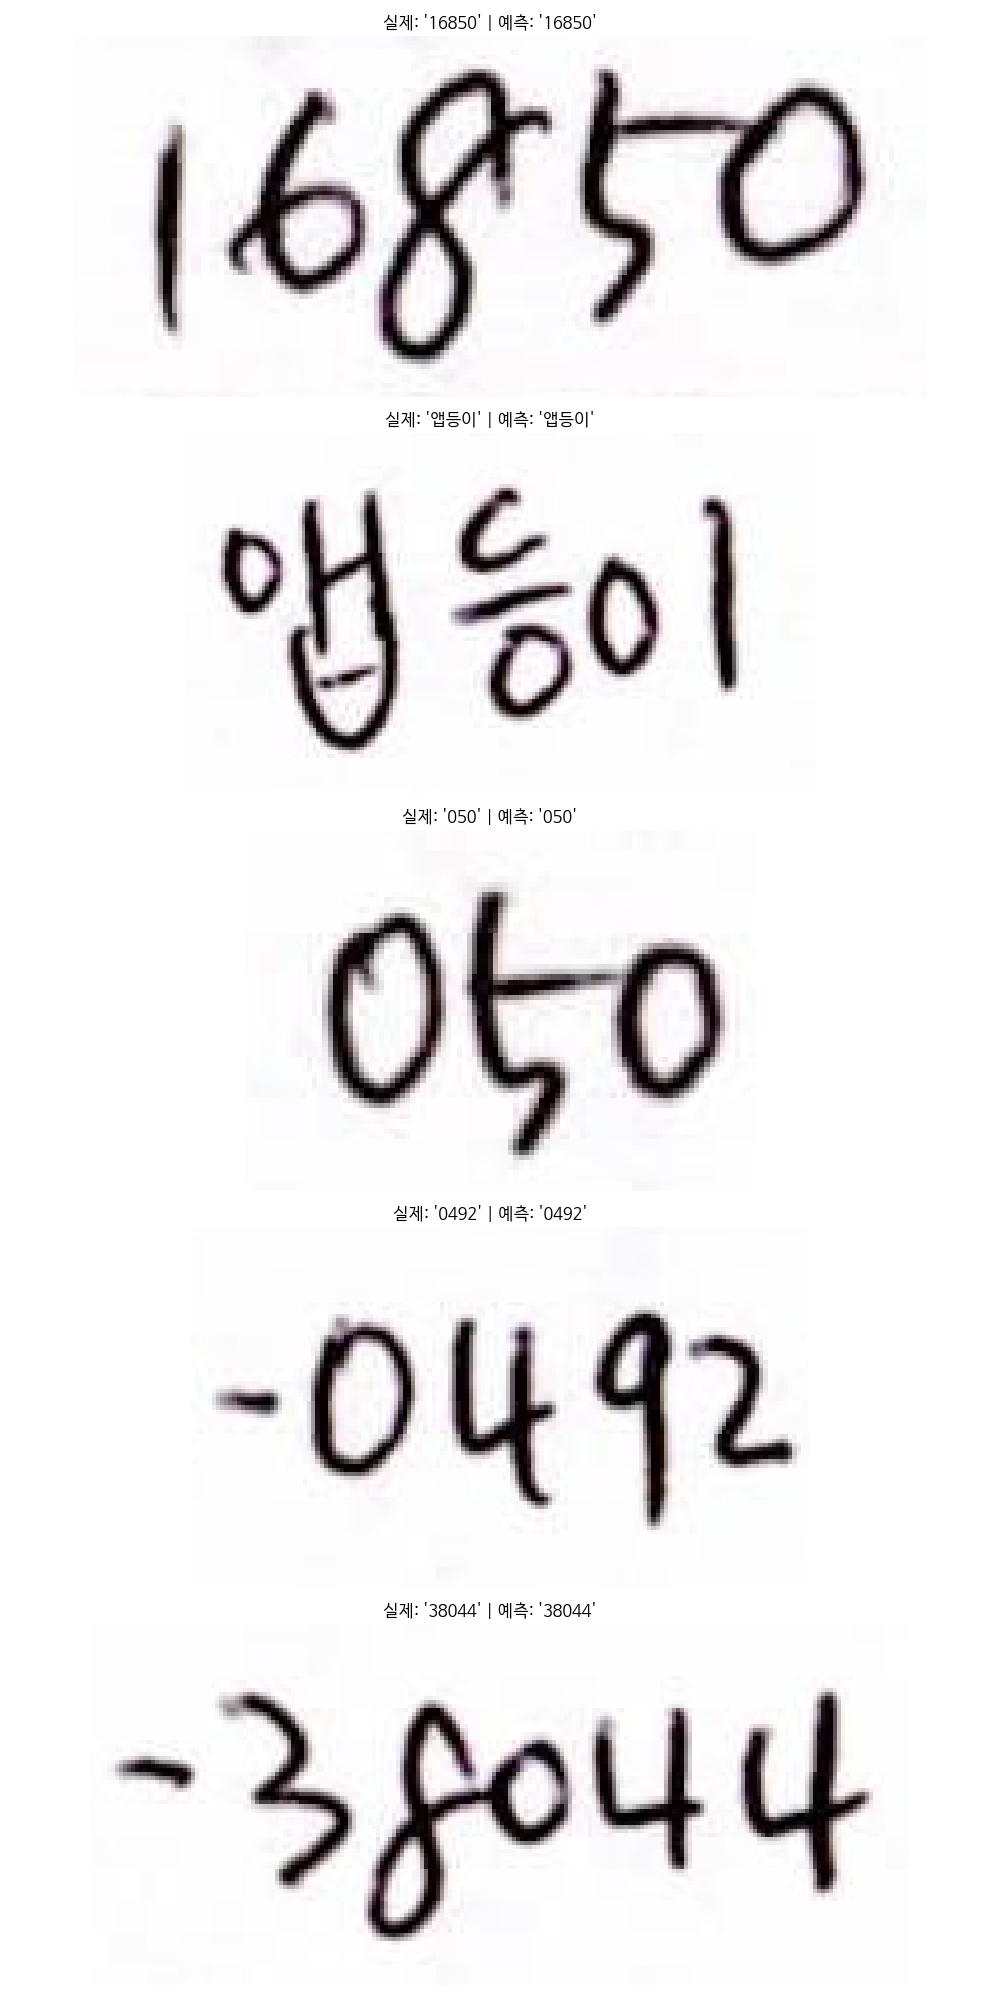 실제: '16850' | 예측: '16850'
16850
실제: '앱등이' | 예측: '앱등이'
앱등이
실제: '050' | 예측: '050'
050
실제: '0492' | 예측: '0492'
-0492
실제: '38044' | 예측: '38044'
-38044